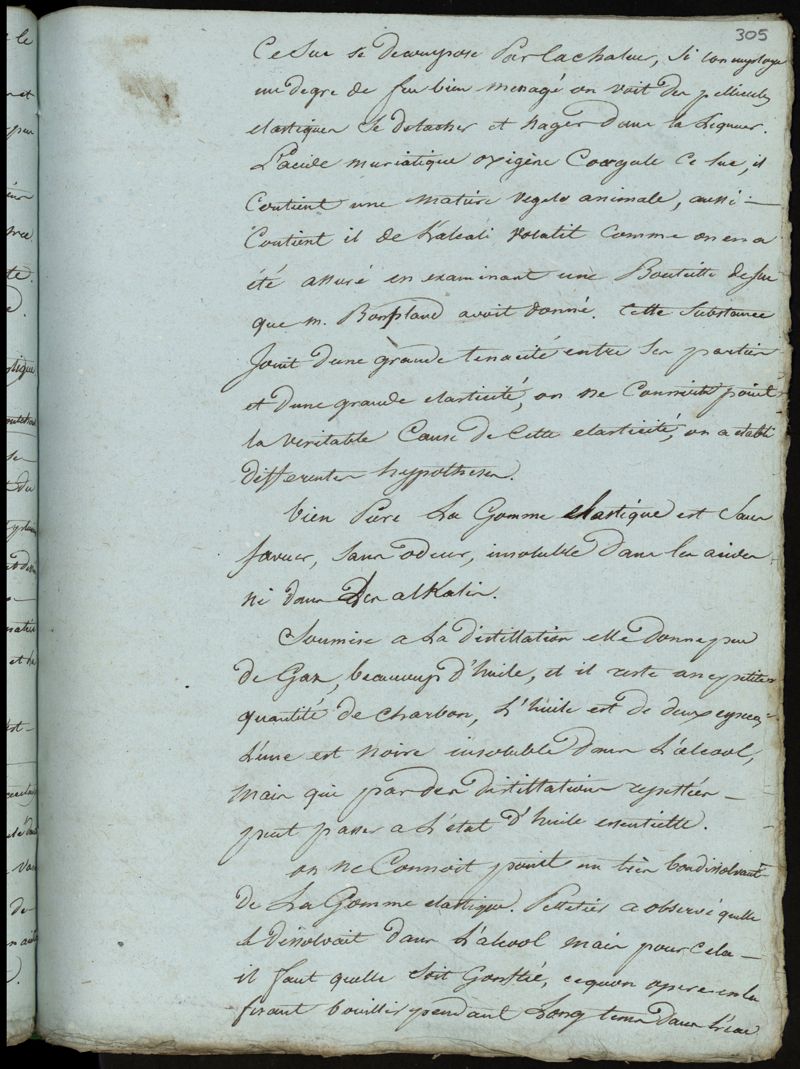 305
Ce Suc se decompose Par la chaleur, Si lon employe
un degre de feu bien menagé on voit des pellicules
elastiques se detacher et nager dans la Liqueur.
L'acide muriatique oxigène Coagule Ce Suc, il
Contient une matière vegeto animale, aussi
Contient il de Lalcali volatil comme on en a
été assuré en examinant une Bouteille de Suc
que m. Bonpland avoit donné. Cette Substance
Jouit d'une grande tenacité entre Ses parties
et d'une grande elasticité, on ne Connoit point
la veritable Cause de Cette elasticité, on a etabli
differentes hypotheses.
bien Pure La Gomme elastique est Sans
saveur, Sans odeur, insoluble Dans les acides
ni dans Des alKalis.
Soumise a La distillation elle donne peu
de Gaz, beaucoup d'huile, et il reste une petite
quantité de charbon, L'huile est de deux especes,
L'une est noire insoluble dans L'alcool,
mais qui par des distillations repettées
peut passer a L'état d'huile essentielle.
on ne Connoit point un très bon dissolvant
de La Gomme elastique. Pelletier a observé quelle
se dissolvait dans L'alcool mais pour cela
il faut quelle soit Gonflée, ce quon opere en la
fesant bouillir pendant Long tems dans l'eau